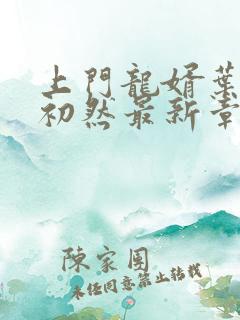 上門龍婿葉
初然最新章
陳家園
未經同意禁止转載